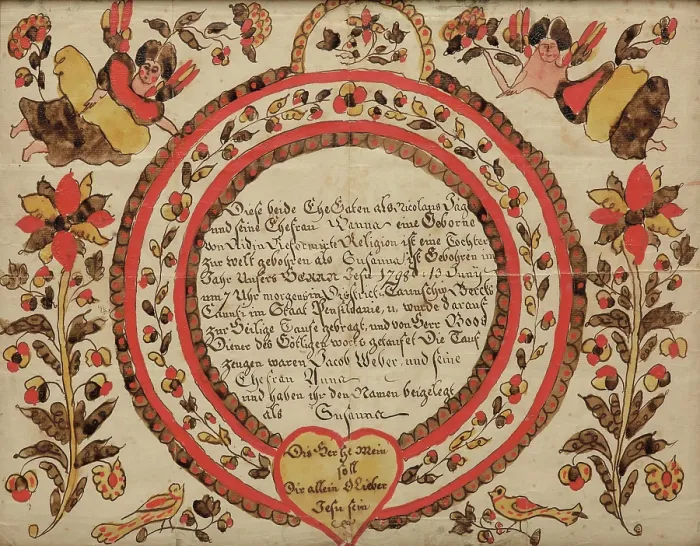 Diese beide Ehe Gaten als Nicolaus Jäg
und seine Ehefrau Hanna eine Geborne
von Ridin Reformirte Religion ist eine Tochter
zur welt gebohren als Susanna ist Gebohren im
Jahr Unsers Herrn Jesu 1798 d 13 Juny
um 7 Uhr morgens in District Taunschip Bercks
Caunti im Staat Pensildanie, u. wurde darauf
zur Heilige Taufe gebragt, und von Herr Boos
Diener des Götligen worts getauft Die Tauf
zeugen waren Jacob Weber und seine
Ehefrau Anna
und haben ihr den Namen beigelegt
als Susanna
Dis Hertz Mein
soll
Dir allein O Lieber
Jesu sein